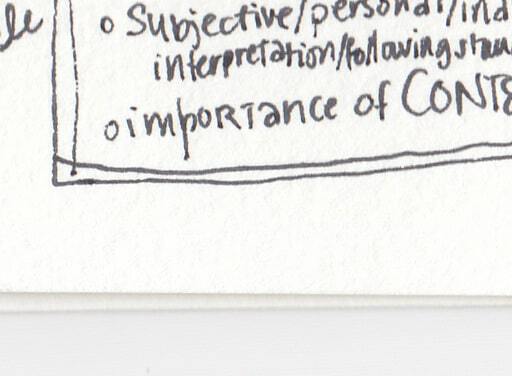 o Subjective/personal/ind
interpretation/following stan
o importance of CONTE